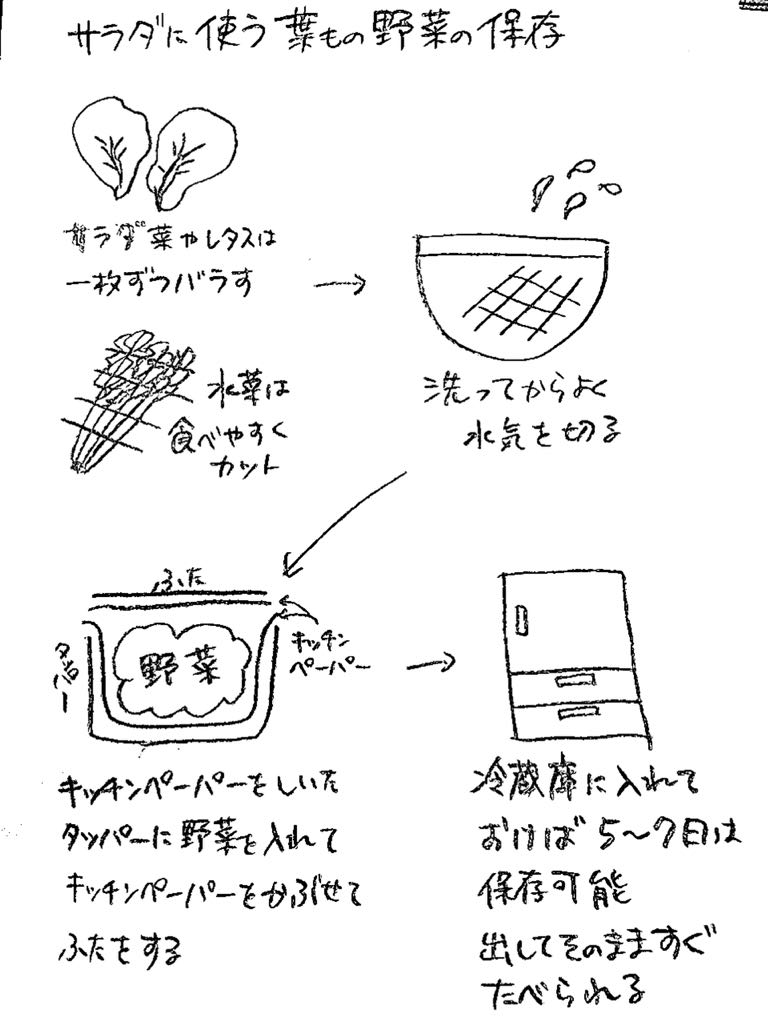 サラダに使う葉もの野菜の保存
サラダ菜やレタスは
一枚ずつバラす
水菜は
食べやすく
カット
洗ってからよく
水気を切る
ふた
タッパー
野菜
キッチン
ペーパー
キッチンペーパーをしいた
タッパーに野菜を入れて
キッチンペーパーをかぶせて
ふたをする
冷蔵庫に入れて
おけば5〜7日は
保存可能
出してそのまますぐ
たべられる